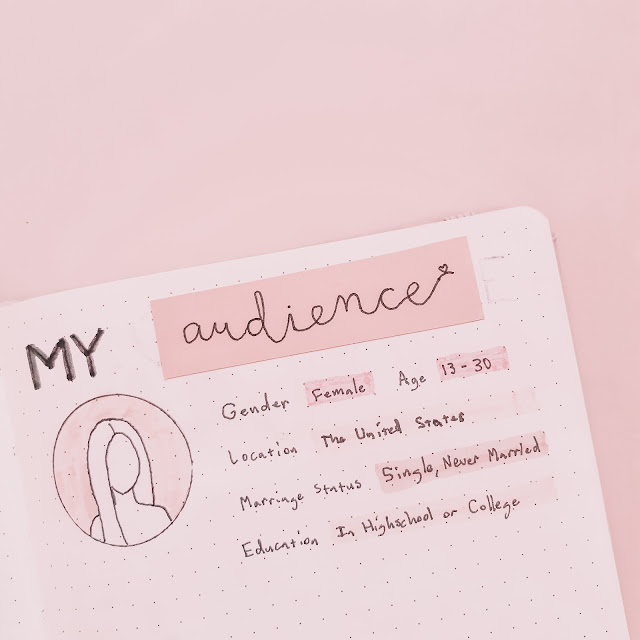 MY audience
Gender Female Age 13-30
Location The United States
Marriage Status Single, Never Married
Education In Highschool or College